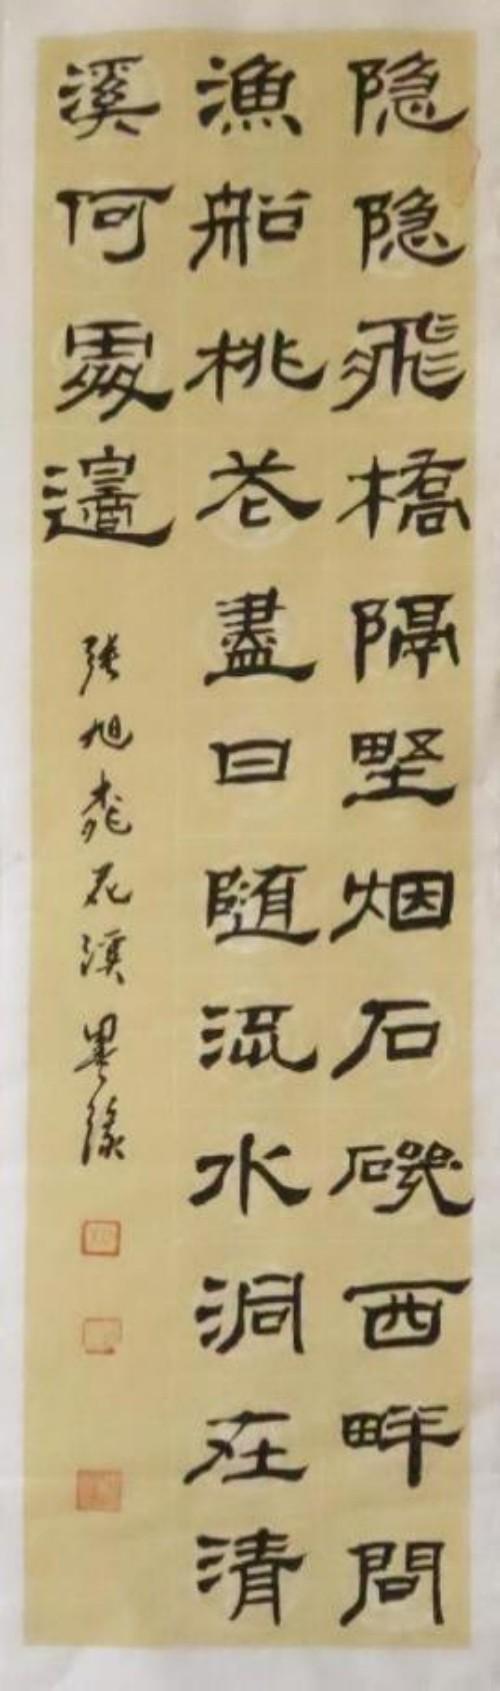 隐隐飛橋隔野烟石磯西畔問
漁船桃花盡日随流水洞在清
溪何處邊
张旭桃花溪 墨缘